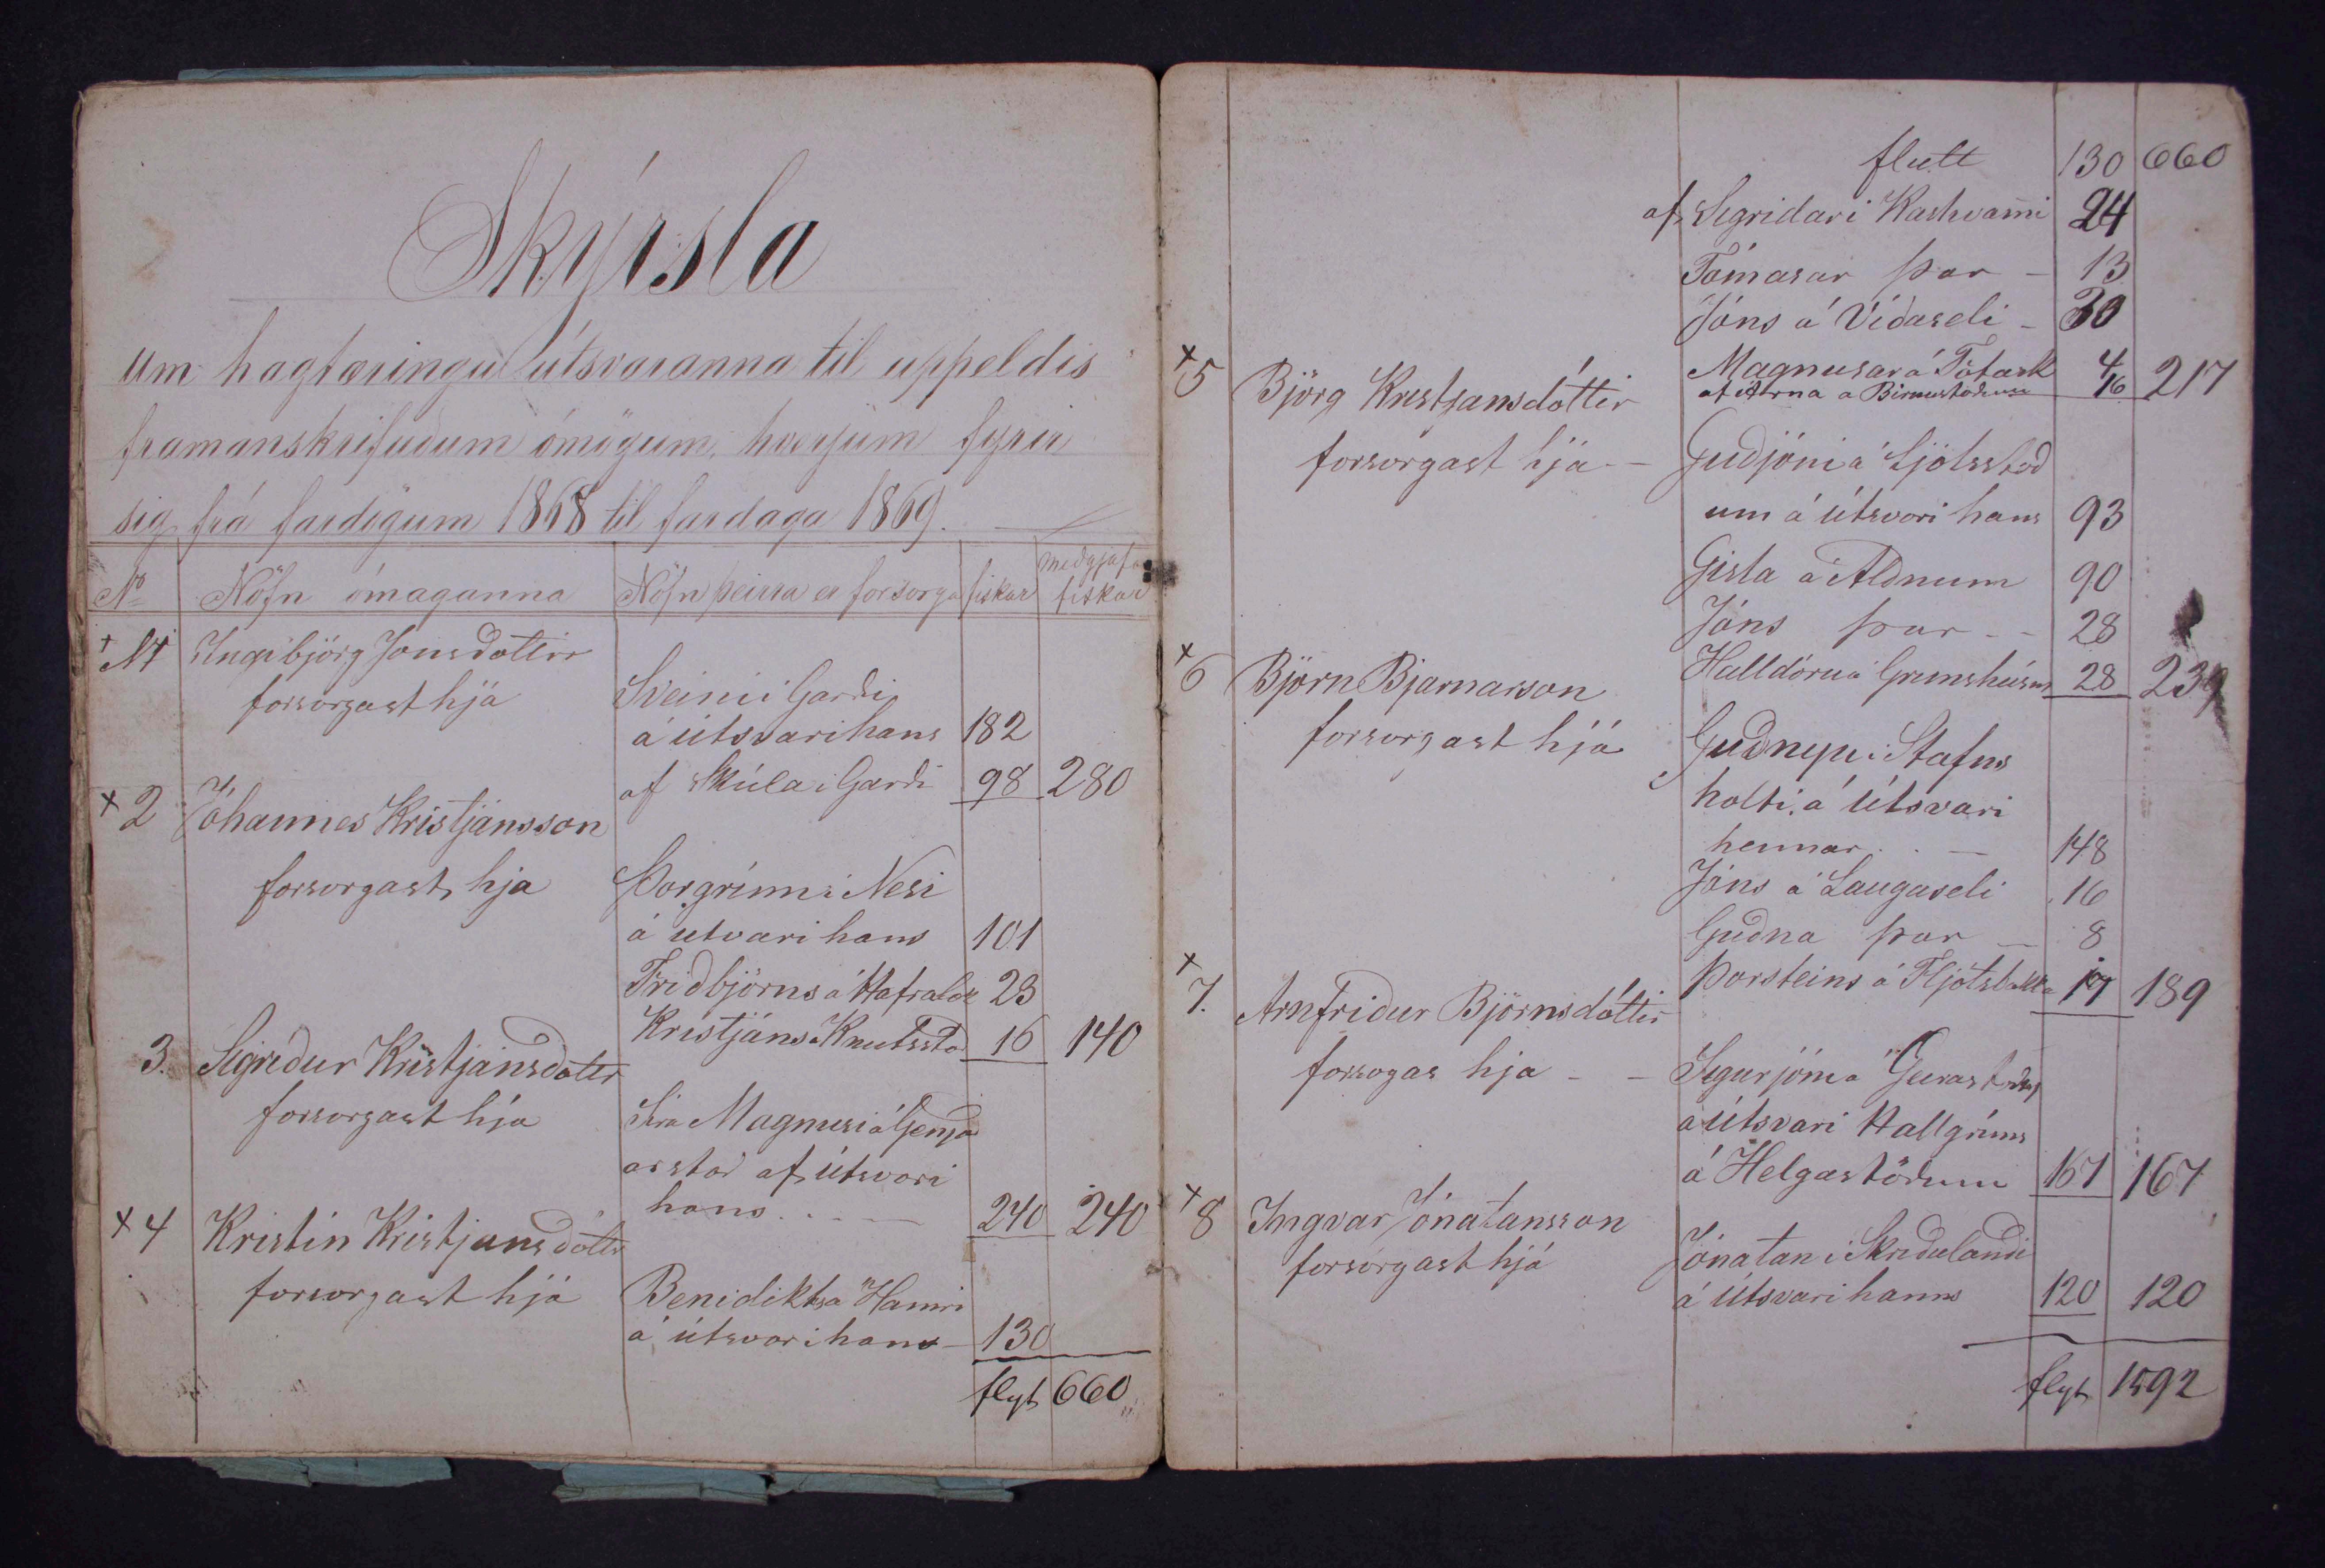 Skýrsla
um hagfæringu útsvaranna til uppeldis
framanskrifuðum ómögum, hverjum fyrir
sig frá fardögum 1868 til fardaga 1869.
No Nöfn ómaganna Nöfn þeirra er forsorga fiskar meðgjafar fiskar
+ N1 Ingibjörg Jónsdóttir
forsorgast hjá Sveini í Garði
á útsvari hans 182
af Skúla í Garði 98 280
+ 2 Jóhannes Kristjánsson
forsorgast hja Þorgrími í Nesi
á utvari hans 101
Friðbjörns á Hafralæk 23
Kristjáns á Knutsstö 16 140
3. Sigriður Kristjánsdóttir
forsorgast hjá Sira Magnusi á Grenjað
arstað af Útsvari
hans 240 240
+ 4 Kristín Kristjansdóttir
forsorgast hjá Benidikts á Hamri
á útsvari hans 130
flyt 660
flutt 130 660
af Sigriðar í Kasthvammi 24
Tómasar þar 13
Jóns á Víðaseli 30
Magnusar á 4
af Arna a Birnustöðum 16 217
+ 5 Björg Kristjansdóttir
forsorgast hjá Guðjóni á Ljótsstöð
um á útsvari hans 93
Gisla á Aldnum 90
Jóns þar 28
Halldóru á Grímshúsum 28 239
+ 6 Björn Bjarnarson
forsorgast hjá Guðnýu i Stafns
holti, á útsvari
hennar 148
Jóns á Laugaseli 16
Guðna þar 8
Þorsteins á Fljótsbakka 17 189
+ 7. Arnfriður Björnsdóttir
forsogas hja Sigurjóni á
á Útsvari Hallgríms
á Helgastöðum 167 167
+ 8 Ingvar Jónatansson
forsorgast hjá Jónatan í Skriðulandi
á Útsvari hanns 120 120
flyt 1592